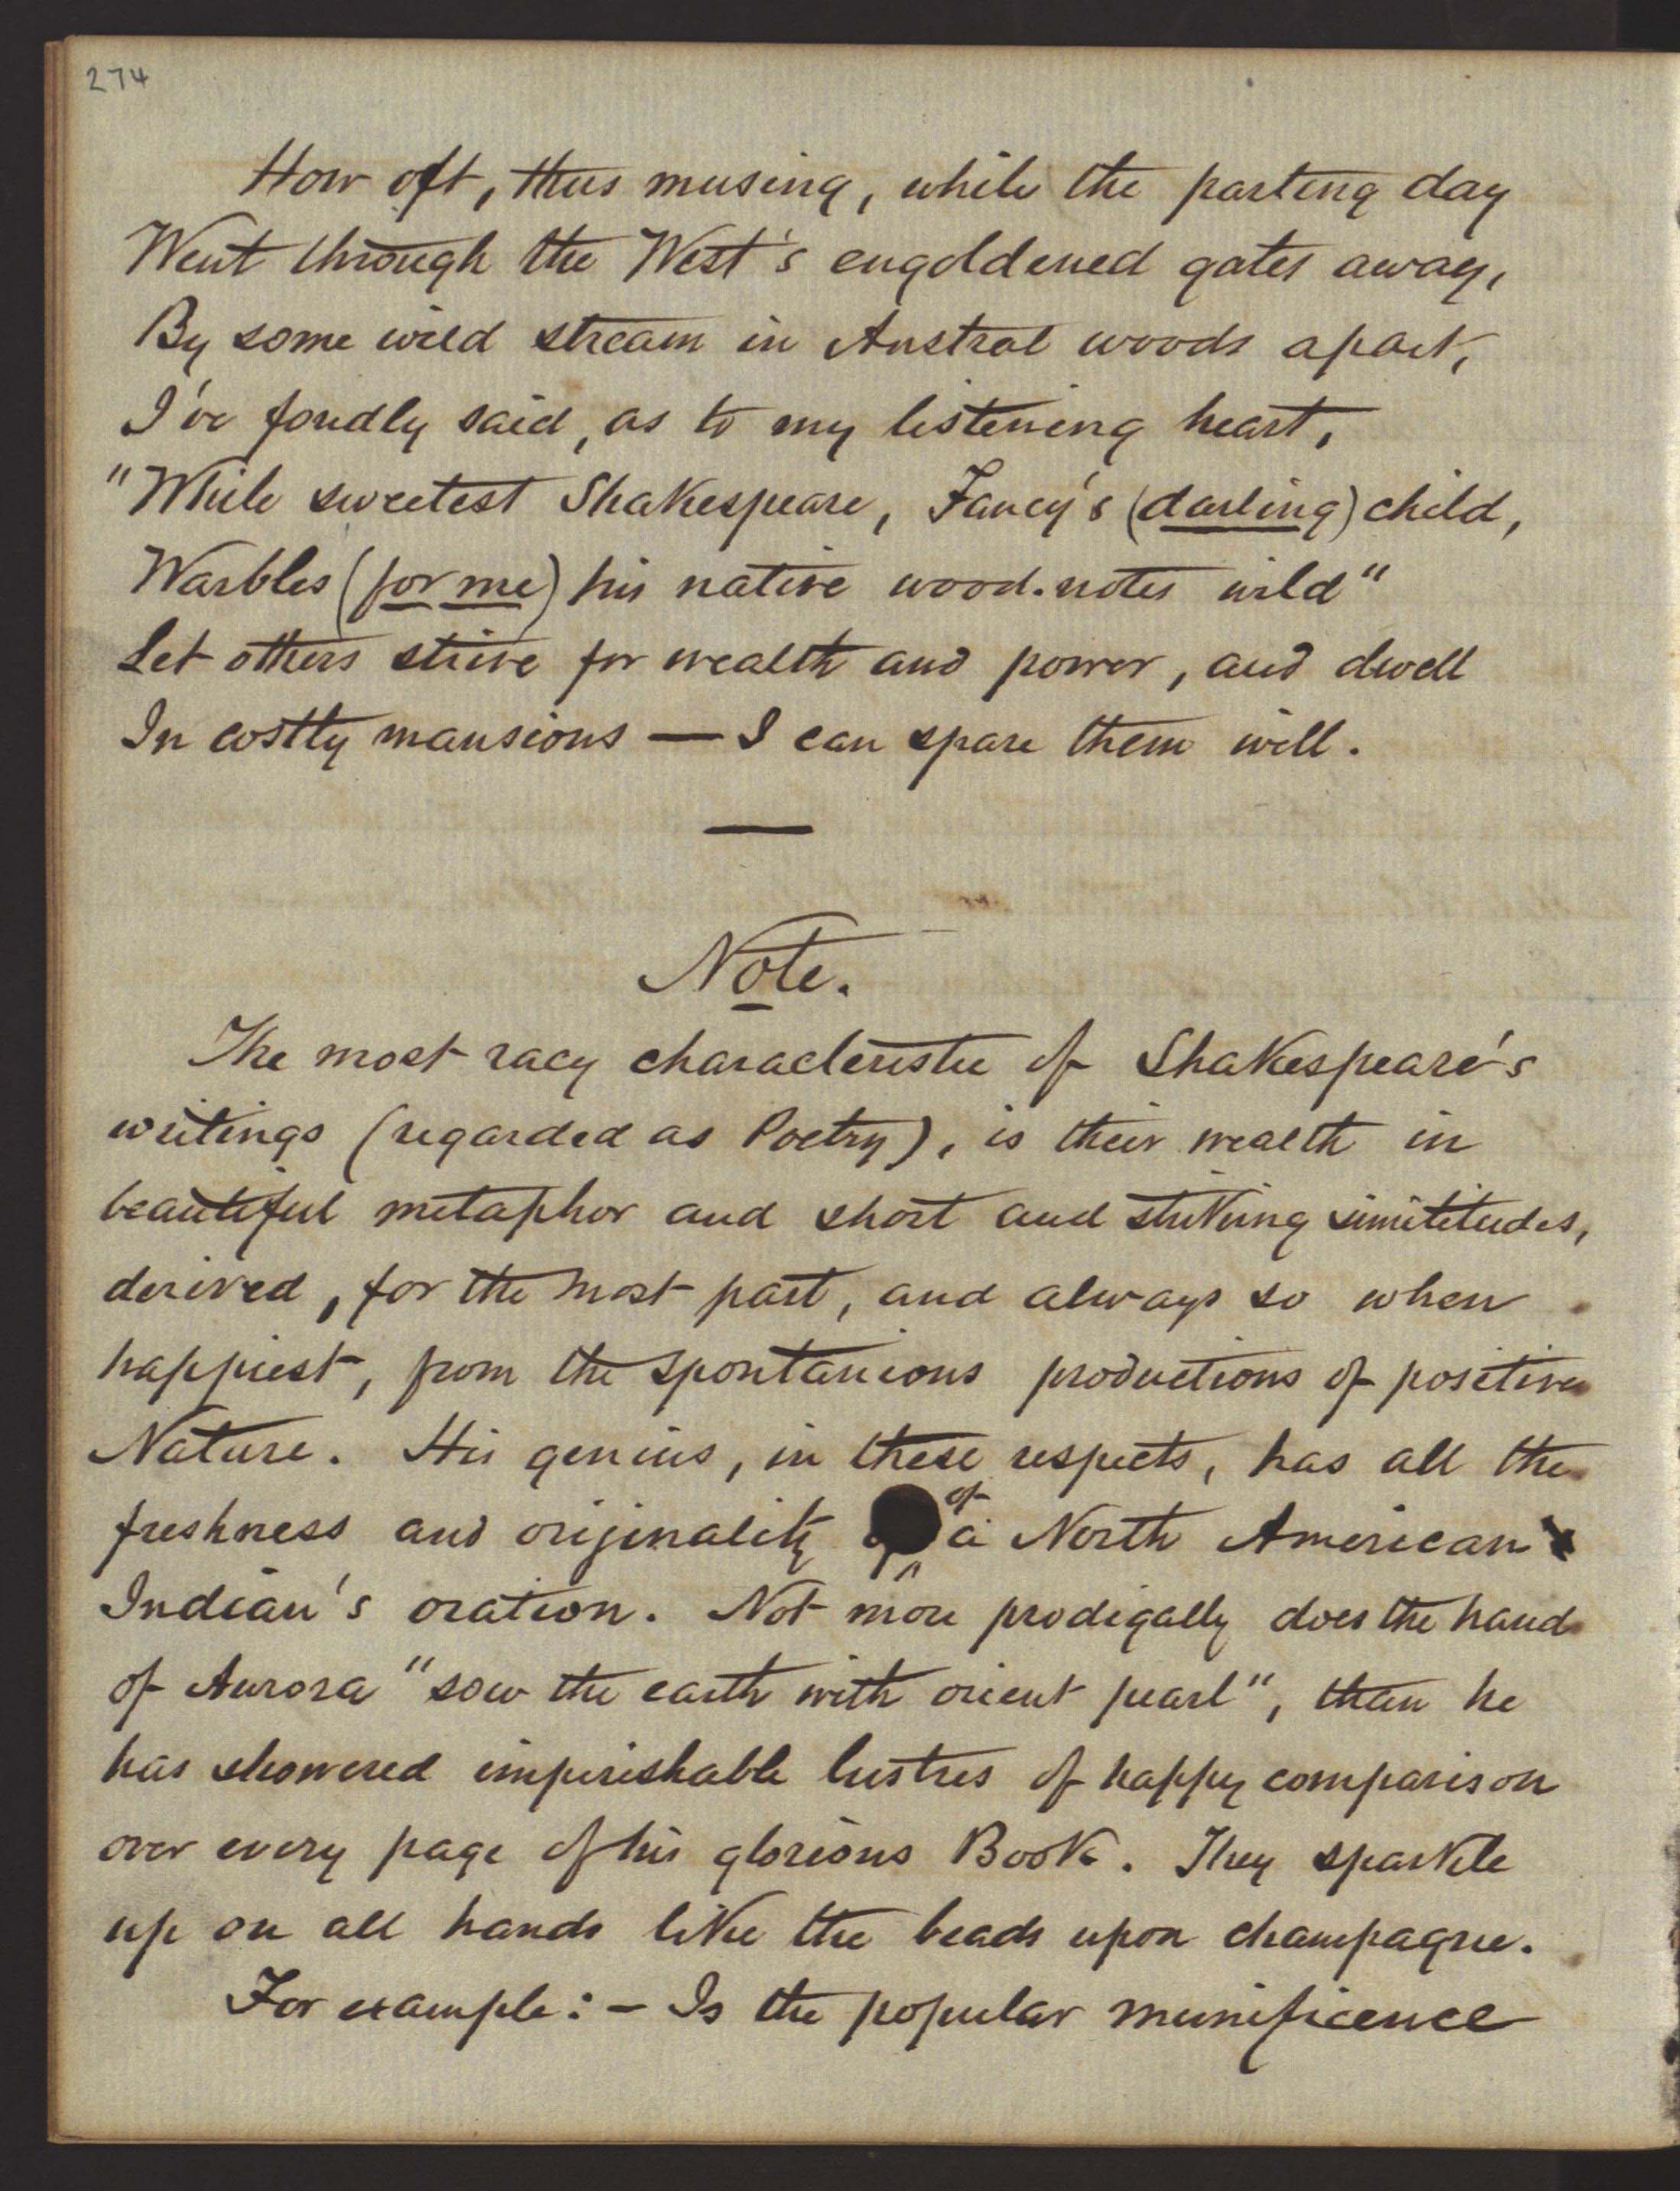 274
How oft, thus musing, while the parting day
Went through the West's engoldened gates away,
By some wild stream in Austral woods apart,
I've fondly said, as to my listening heart,
"While sweetest Shakespeare, Fancy's (darling) child,
Warbles (for me) his native wood-notes wild"
Let others strive for wealth and power, and dwell
In costly mansions — I can spare them well.
Note.
The most racy characteristic of Shakespeare's
writings (regarded as Poetry), is their wealth in
beautiful metaphor and short and striking similitudes,
derived, for the most part, and always so when
happiest, from the spontanious productions of positive
Nature. His genius, in these respects, has all the
freshness and originality of a North American
Indian's oration. Not more prodigally does the hand
of Aurora "sow the earth with orient pearl", than he
has showered imperishable lustres of happy comparison
over every page of his glorious Book. They sparkle
up on all hands like the beads upon champagne.
For example: - Is the popular munificence